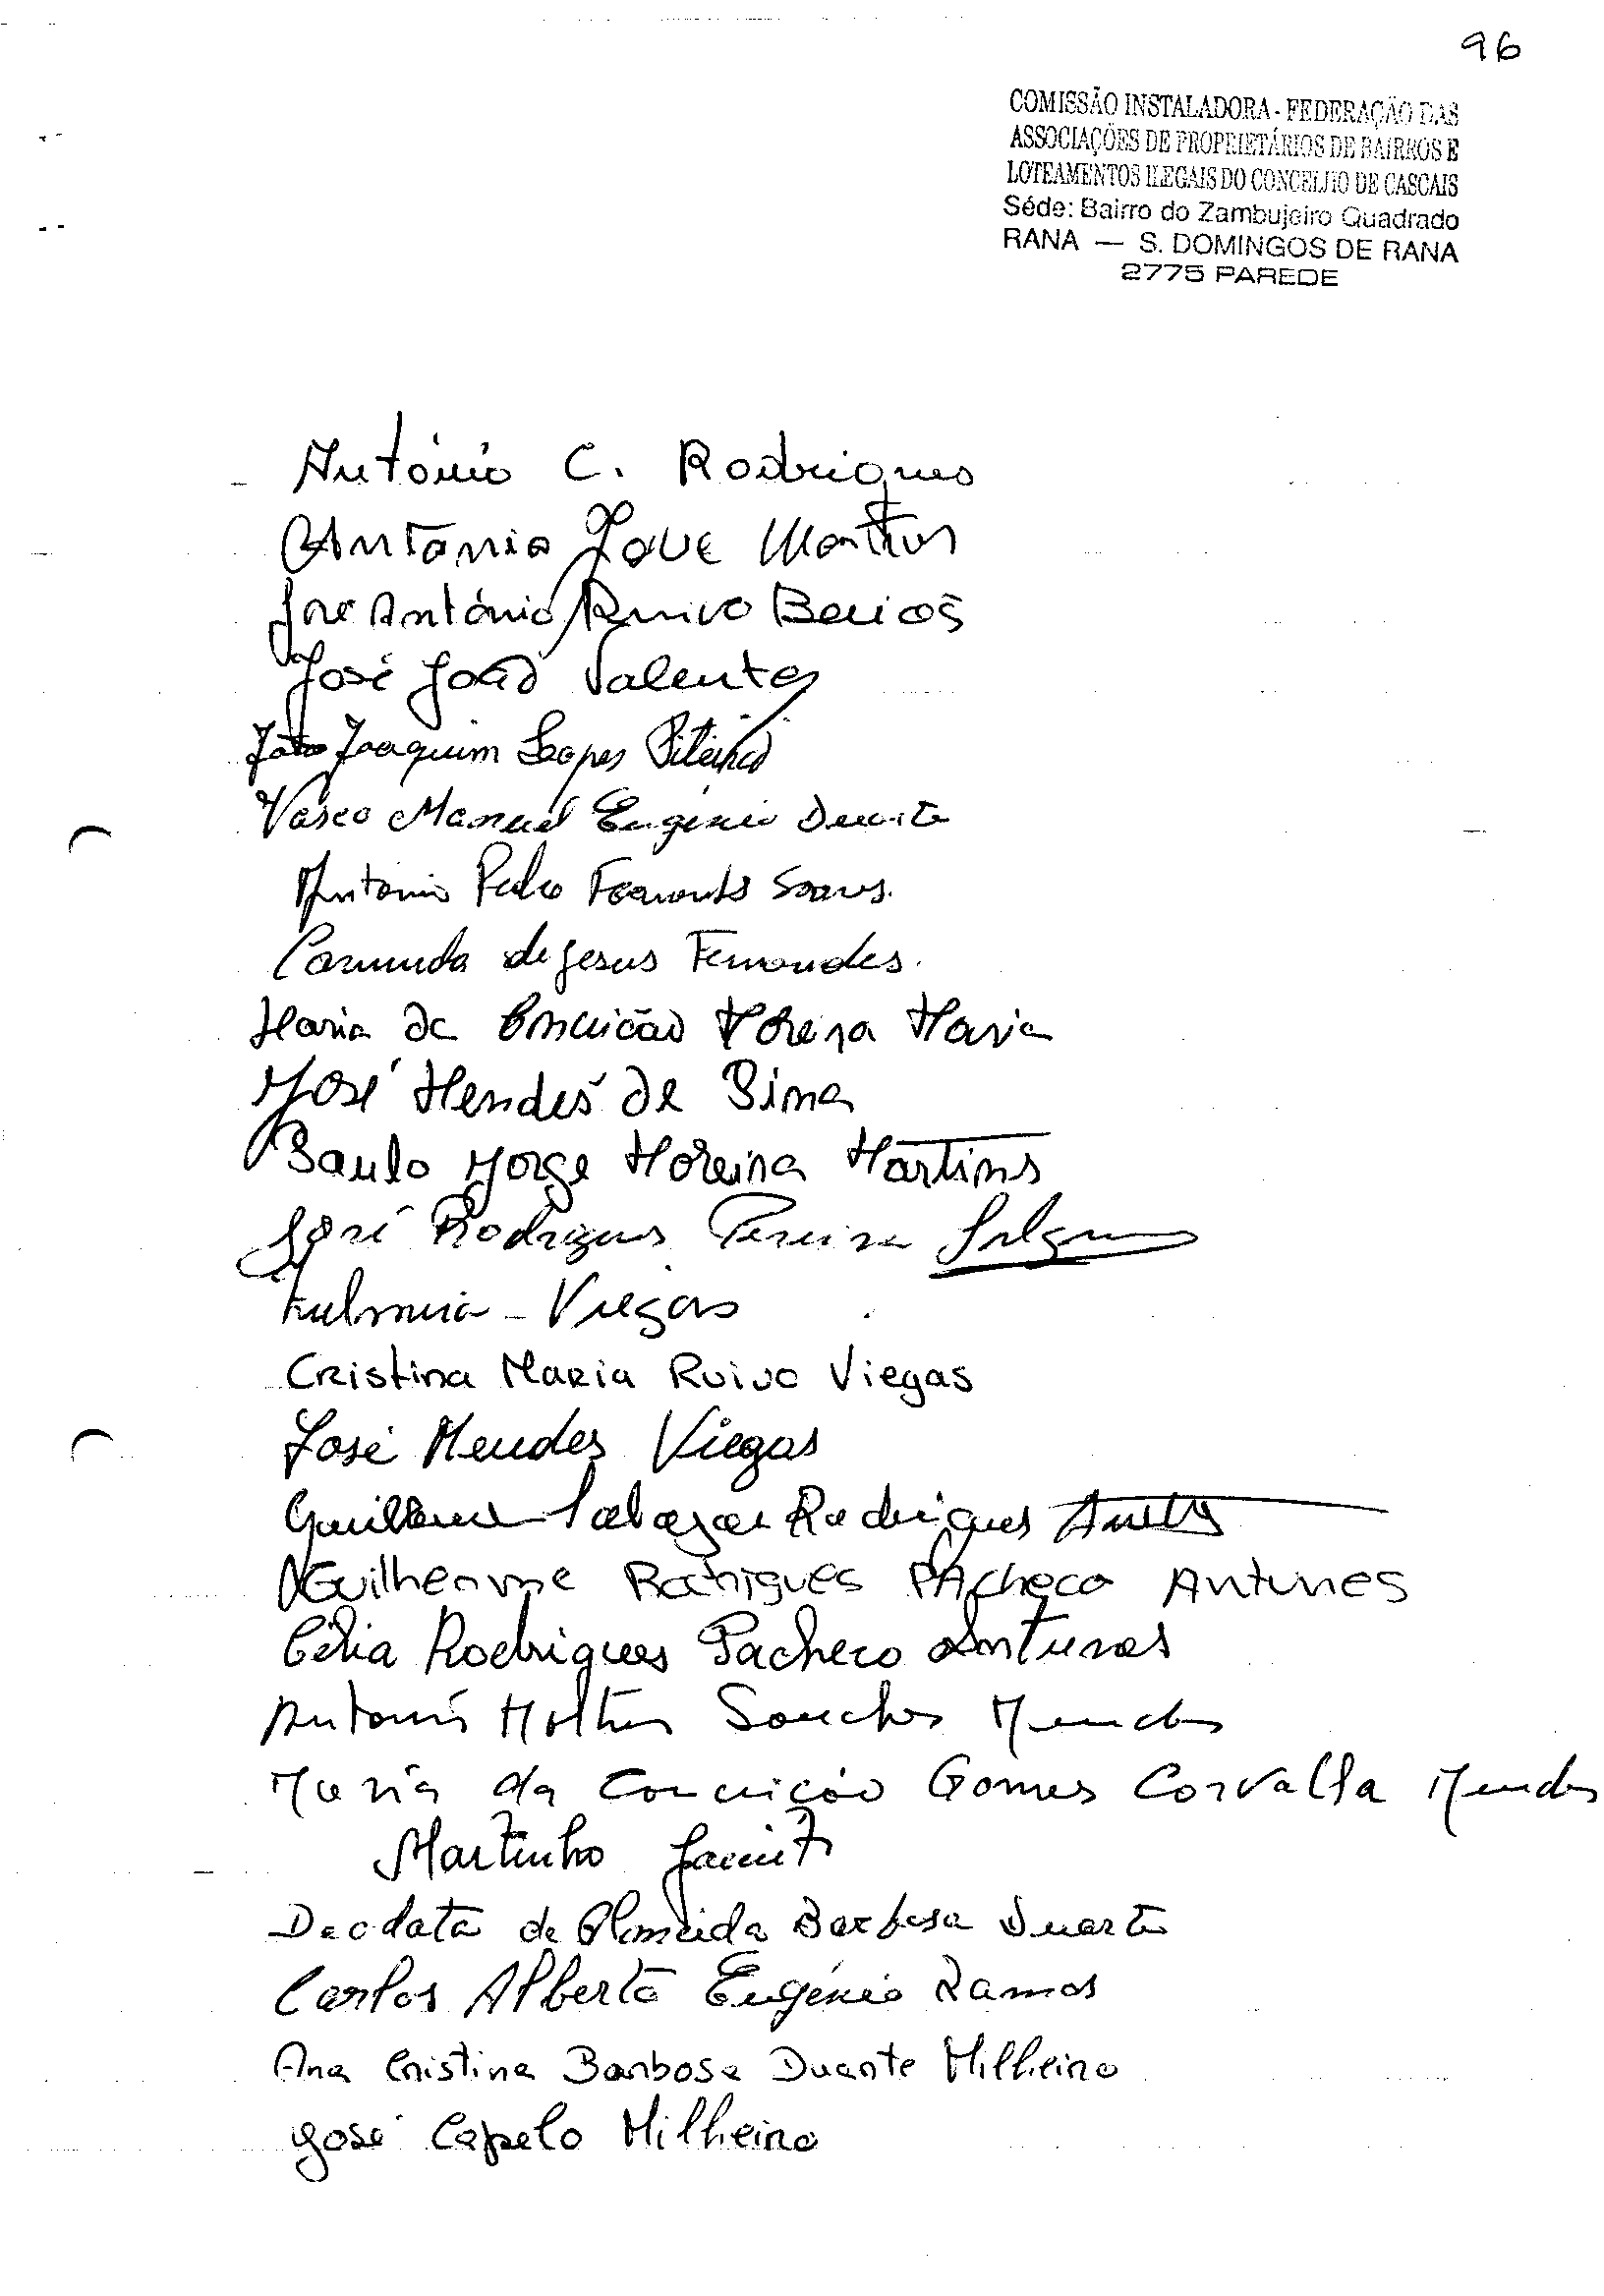 96
COMISSÃO INSTALADORA - FEDERAÇÃO DAS
ASSOCIAÇÕES DE PROPRIETÁRIOS DE BAIRROS E
LOTEAMENTOS ILEGAIS DO CONCELHO DE CASCAIS
Séde: Bairro do Zambujeiro Quadrado
RANA — S. DOMINGOS DE RANA
2775 PAREDE
António C. Rodrigues
António José Martins
José António Ruivo
José João Valente
João Joaquim Lopes
Vasco Manuel Eugénio Duarte
Antonio Pedro Fernandes Soares.
de Jesus Fernandes.
Maria da Conceicão Moreira Maria
José Mendes de Lima
Paulo Jorge Moreira Martins
José Rodrigues Pereira
Viegas
Cristina Maria Ruivo Viegas
José Mendes Viegas
Guilherme Salazar Rodrigues
Guilherme Rodrigues Pacheco Antunes
Célia Rodrigues Pacheco Antunes
António Sanches Mendes
Maria da Conceição Gomes Corvalla Mendes
Martinho Jacinto
Deodata de Almeida Barbosa Duarte
Carlos Alberto Eugénio Ramos
Ana Cristina Barbosa Duarte Milheiro
José Capelo Milheiro